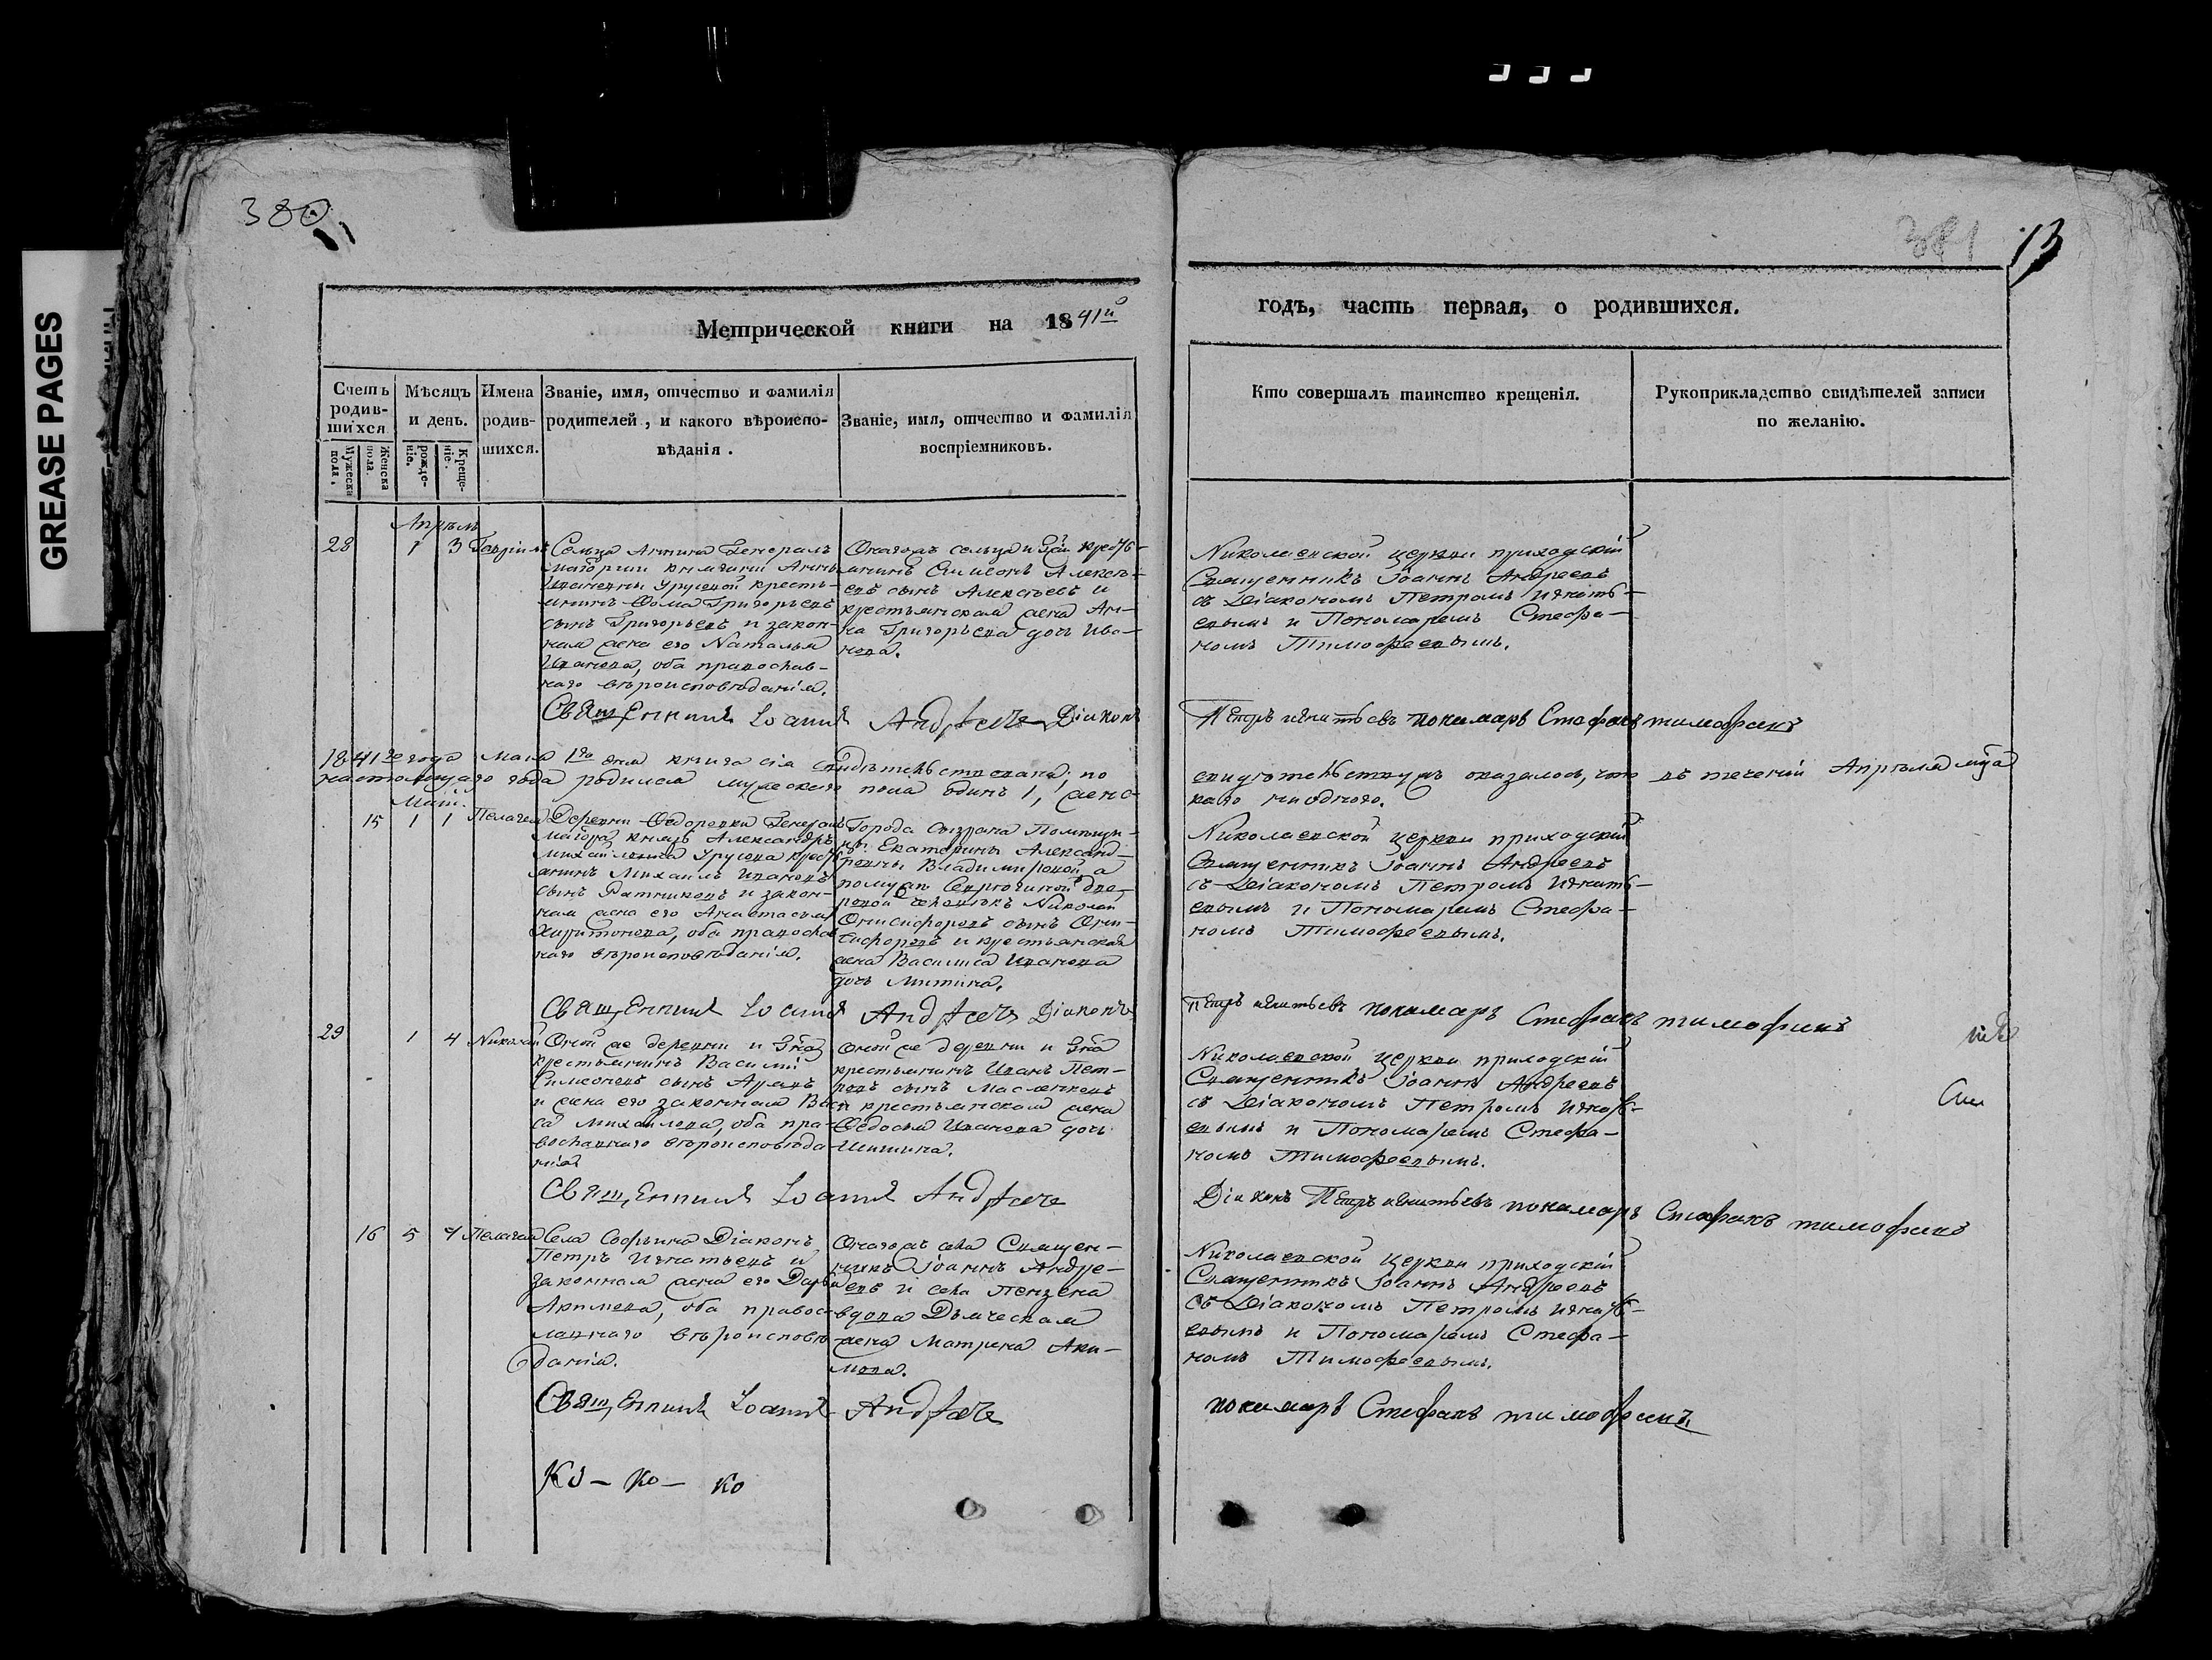 GREASE PAGES
380
381
13
Метрической книги на 1841й
годъ, часть первая, о родившихся.
Счетъ родившихся
Мужеска пола.
Женска пола.
Мѣсяцъ и день.
рожденіе.
Крещеніе.
Имена родившихся.
Званіе, имя, отчество и фамилія
родителей, и какого вѣроиспо-
вѣданія.
Званіе, имя, отчество и фамилія
воспріемниковъ.
Кто совершалъ таинство крещенія.
Рукоприкладство свидѣтелей записи
по желанію.
Апрѣль
28 1 3 Гавріилъ
Сельца Аннина Генералъ
маіорши княгини Анны
Ивановны Урусовой кресть-
янинъ Ѳома Григорьевъ
сынъ Григорьевъ и закон-
ная жена его Наталья
Иванова, оба православ-
наго вѣроисповѣданія.
Онагожъ сельца и
янинъ Симеонъ Алексѣ-
евъ сынъ Алексѣевъ и
крестьянская жена Ан-
на Григорьева дочь Ива-
нова.
Николаевской церкви приходскій
Священникъ Іоаннъ Андреевъ
съ Діакономъ Петромъ Игнать-
евымъ и Пономаремъ Стефа-
номъ Тимофеевымъ.
Священникъ Іоаннъ Андреевъ Діаконъ
Петръ Игнатьевъ пономарь Стефанъ тимофеевъ
1841го года Маія 1го дня книга сія свидѣтельствована; по
свидѣтельству оказалось, что въ теченіи Апрѣля мца
настоящаго года родился мужескаго пола одинъ 1, женс-
каго ниодного.
Маій.
15 1 1 Пелагея
Деревни Ѳедоровки Генералъ
маіора князь Александръ
Михайловича Урусова крест
янинъ Михаилъ Ивановъ
сынъ Ратниковъ и закон-
ная жена его Анастасья
Харитонова, оба православ
наго вѣроисповѣданія.
Города Сызрана Помѣщи-
цы Екатерины Александ-
ровны Владимировой, а
дво-
ровой человѣкъ Николай
Онисифоровъ сынъ Они-
сифоровъ и крестьянская
жена Василиса Иванова
дочь Митина.
Николаевской церкви приходскій
Священникъ Іоаннъ Андреевъ
съ Діакономъ Петромъ Игнать-
евымъ и Пономаремъ Стефа-
номъ Тимофеевымъ.
Священникъ Іоаннъ Андреевъ Діаконъ
Петръ игнатьевъ пономарь Стефанъ тимофеевъ
29 1 4 Николай
Оной же деревни и Гна
крестьянинъ Василій
Симеоновъ сынъ
и жена его законная Васи
са Михайлова, оба пра-
вославнаго вѣроисповѣда
нія
Оной же деревни и Гна
крестьянинъ Иванъ Пет-
ровъ сынъ Масленковъ
и крестьянская жена
Ѳедосья Иванова дочь
Шишина.
Николаевской церкви приходскій
Священникъ Іоаннъ Андреевъ
съ Діакономъ Петромъ Игнать-
евымъ и Пономаремъ Стефа-
номъ Тимофеевымъ.
Священникъ Іоаннъ Андреевъ
Діаконъ Петръ игнатьевъ пономарь Стефанъ тимофеевъ
16 5 9 Пелагея
Села Софьина Діаконъ
Петръ Игнатьевъ и
законная жена его Дарья
Акимова, оба правос-
лавнаго вѣроисповѣ
данія.
Онагожъ села Священ-
никъ Іоаннъ Андре-
евъ и села Пензена
вдова Дьяческая
жена Матрена Аки-
мова.
Николаевской церкви приходскій
Священникъ Іоаннъ Андреевъ
съ Діакономъ Петромъ Игнать-
евымъ и Пономаремъ Стефа-
номъ Тимофеевымъ.
Священникъ Іоаннъ Андреевъ
пономарь Стефанъ тимофеевъ.
Ко - ко - ко